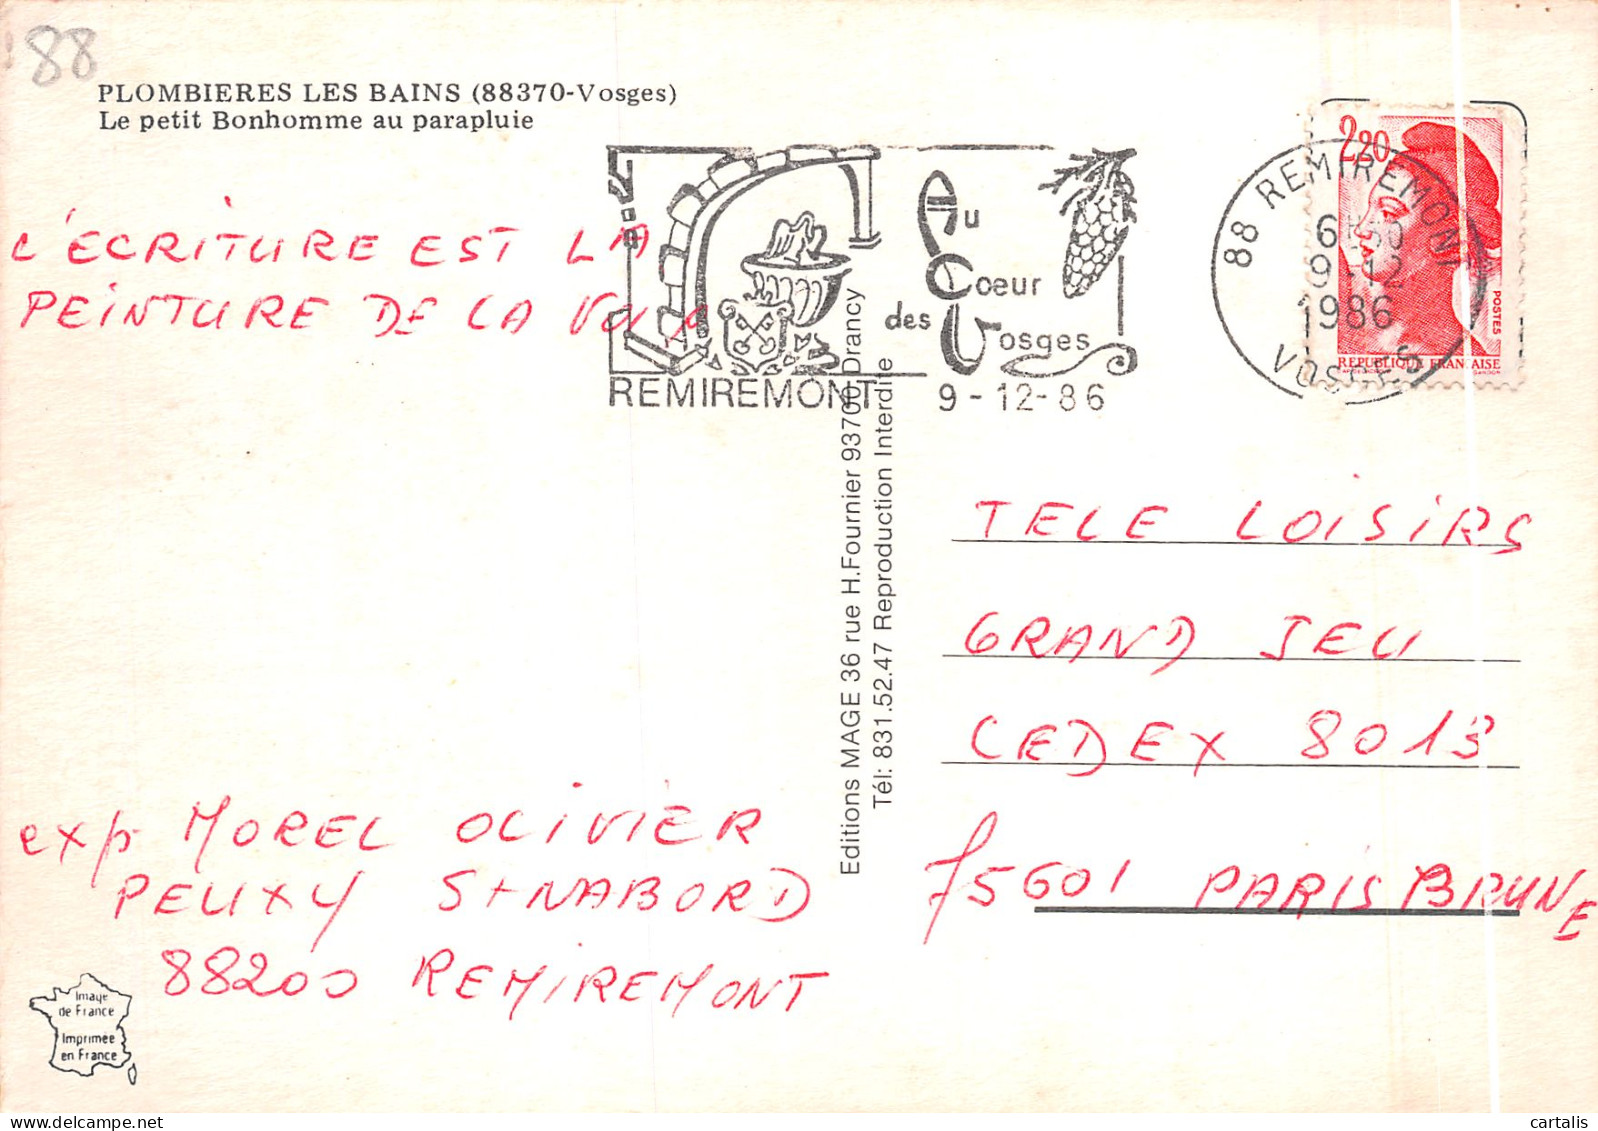 88
PLOMBIERES LES BAINS (88370-Vosges)
Le petit Bonhomme au parapluie
L'ECRITURE EST LA
PEINTURE DE LA VOIX
Au
Coeur
des Vosges
REMIREMONT 9-12-86
88 REMIREMONT
9-12
1986
VOSGES
2,20
POSTES
REPUBLIQUE FRANÇAISE
Editions MAGE 36 rue H.Fournier 93700 Drancy
Tél: 831.52.47 Reproduction Interdite
TELE LOISIRS
GRAND JEU
CEDEX 8013
75601 PARIS BRUNE
exp MOREL OLIVIER
PEUXY St NABORD
88200 REMIREMONT
Image
de France
Imprimée
en France
cartalis